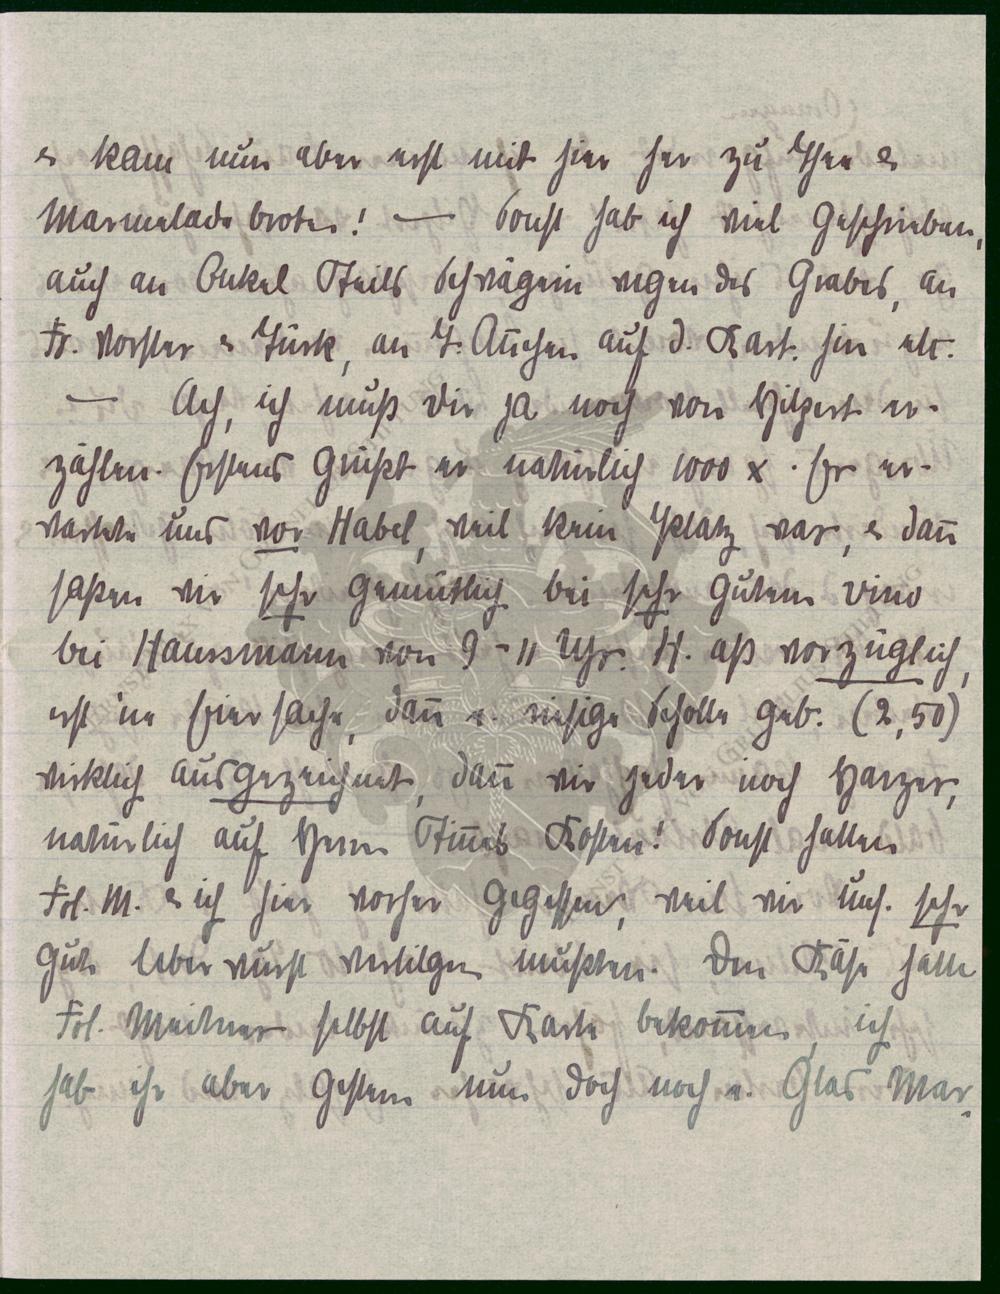 & kam nun aber erst mit hier her zu Thee &
Marmeladebroten! — Sonst hab ich viel geschrieben,
auch an Onkel Theils Schwägerin wegen des Grabes, an
Fr. Vorster & Türk, an T. Auchen auf d. Kart. hin etc.
— Ach, ich muß dir ja noch von Hilpert er-
zählen. Erstens grüßt er natürlich 1000 x. Er er-
wartete uns vor Habel, weil kein Platz war, & dan̄
saßen wir sehr gemütlich bei sehr gutem vino
bei Haussmann von 9-11 Uhr. H. aß vorzüglich,
erst 'ne Eiersache, dan̄ e. riesige Scholle geb. (2,50)
wirklich ausgezeichnet, dan̄ wir jeder noch Harzer,
natürlich auf Herrn Kosten! Sonst hatten
Frl. M. & ich hier vorher gegessen, weil wir uns. sehr
gute Leberwurst vertilgen mußten. Den Käse hatte
Frl. Meitner selbst auf Karte bekom̄en, ich
hab ihr aber gestern nun doch noch e. Glas Mar-